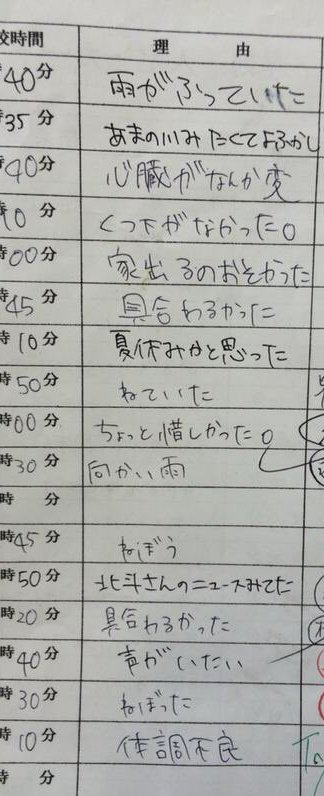 校時間 理由
時40分 雨がふっていた
時35分 あまの川みたくてよふかし
時40分 心臓がなんか変
時10分 くつ下がなかった。
時00分 家出るのおそかった
時45分 具合わるかった
時10分 夏休みかと思った
時50分 ねていた
時00分 ちょっと惜しかった。
時30分 向かい雨
時 分
時45分 ねぼう
時50分 北斗さんのニュースみてた
時20分 具合わるかった
時40分 声がいたい
時30分 ねぼった
時10分 体調不良
時 分